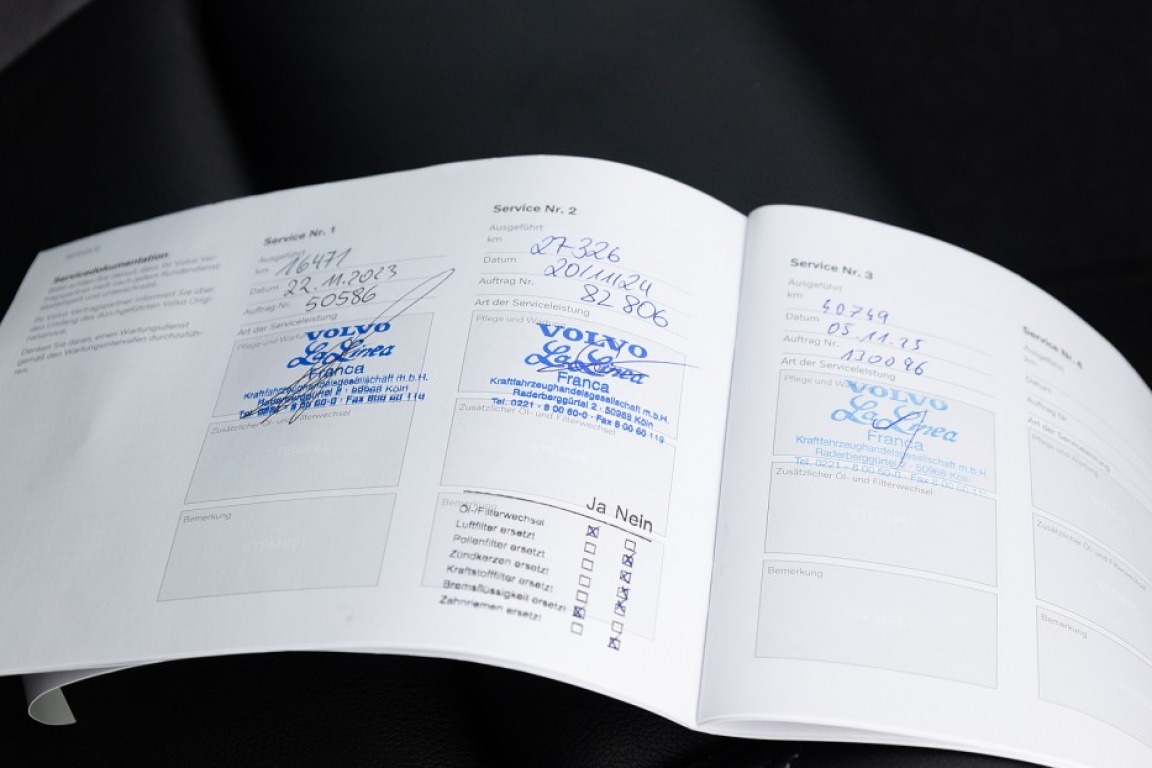 SERVICE
Servicedokumentation
Ihr Volvo Vertragspartner informiert Sie über
den Umfang des durchgeführten Volvo Origi-
Denken Sie daran, einen Wartungsdienst
gemäß den Wartungsintervallen durchzufüh-
ren.
Service Nr. 1
Ausgeführt
km 16471
Datum 22.11.2023
Auftrag Nr. 50586
Art der Serviceleistung
Pflege und Wartung
VOLVO
La Linea
Franca
Kraftfahrzeughandelsgesellschaft m.b.H.
Raderberggürtel 2 · 50968 Köln
Tel. 0221 - 8 00 60-0 · Fax 8 00 60 119
Zusätzlicher Öl- und Filterwechsel
STEMPEL
Bemerkung
STEMPEL
Service Nr. 2
Ausgeführt
km 27326
Datum 20/11/24
Auftrag Nr. 82806
Art der Serviceleistung
Pflege und Wartung
VOLVO
La Linea
Franca
Kraftfahrzeughandelsgesellschaft m.b.H.
Raderberggürtel 2 · 50968 Köln
Tel. 0221 - 8 00 60-0 · Fax 8 00 60 119
Zusätzlicher Öl- und Filterwechsel
STEMPEL
Bemerkung
Ja Nein
Öl-/Filterwechsel
Luftfilter ersetzt
Pollenfilter ersetzt
Zündkerzen ersetzt
Kraftstofffilter ersetzt
Bremsflüssigkeit ersetzt
Zahnriemen ersetzt
Service Nr. 3
Ausgeführt
km 40749
Datum 05.11.25
Auftrag Nr. 130096
Art der Serviceleistung
Pflege und Wartung
VOLVO
La Linea
Franca
Kraftfahrzeughandelsgesellschaft m.b.H.
Raderberggürtel 2 · 50968 Köln
Tel. 0221 - 8 00 60-0 · Fax 8 00 60 11
Zusätzlicher Öl- und Filterwechsel
STEMPEL
Bemerkung
STEMPEL
Service Nr. 4
Ausgeführt
km
Datum
Auftrag Nr.
Art der Serviceleistung
Pflege und Wartung
Zusätzlicher Öl- und Filterwechsel
Bemerkung